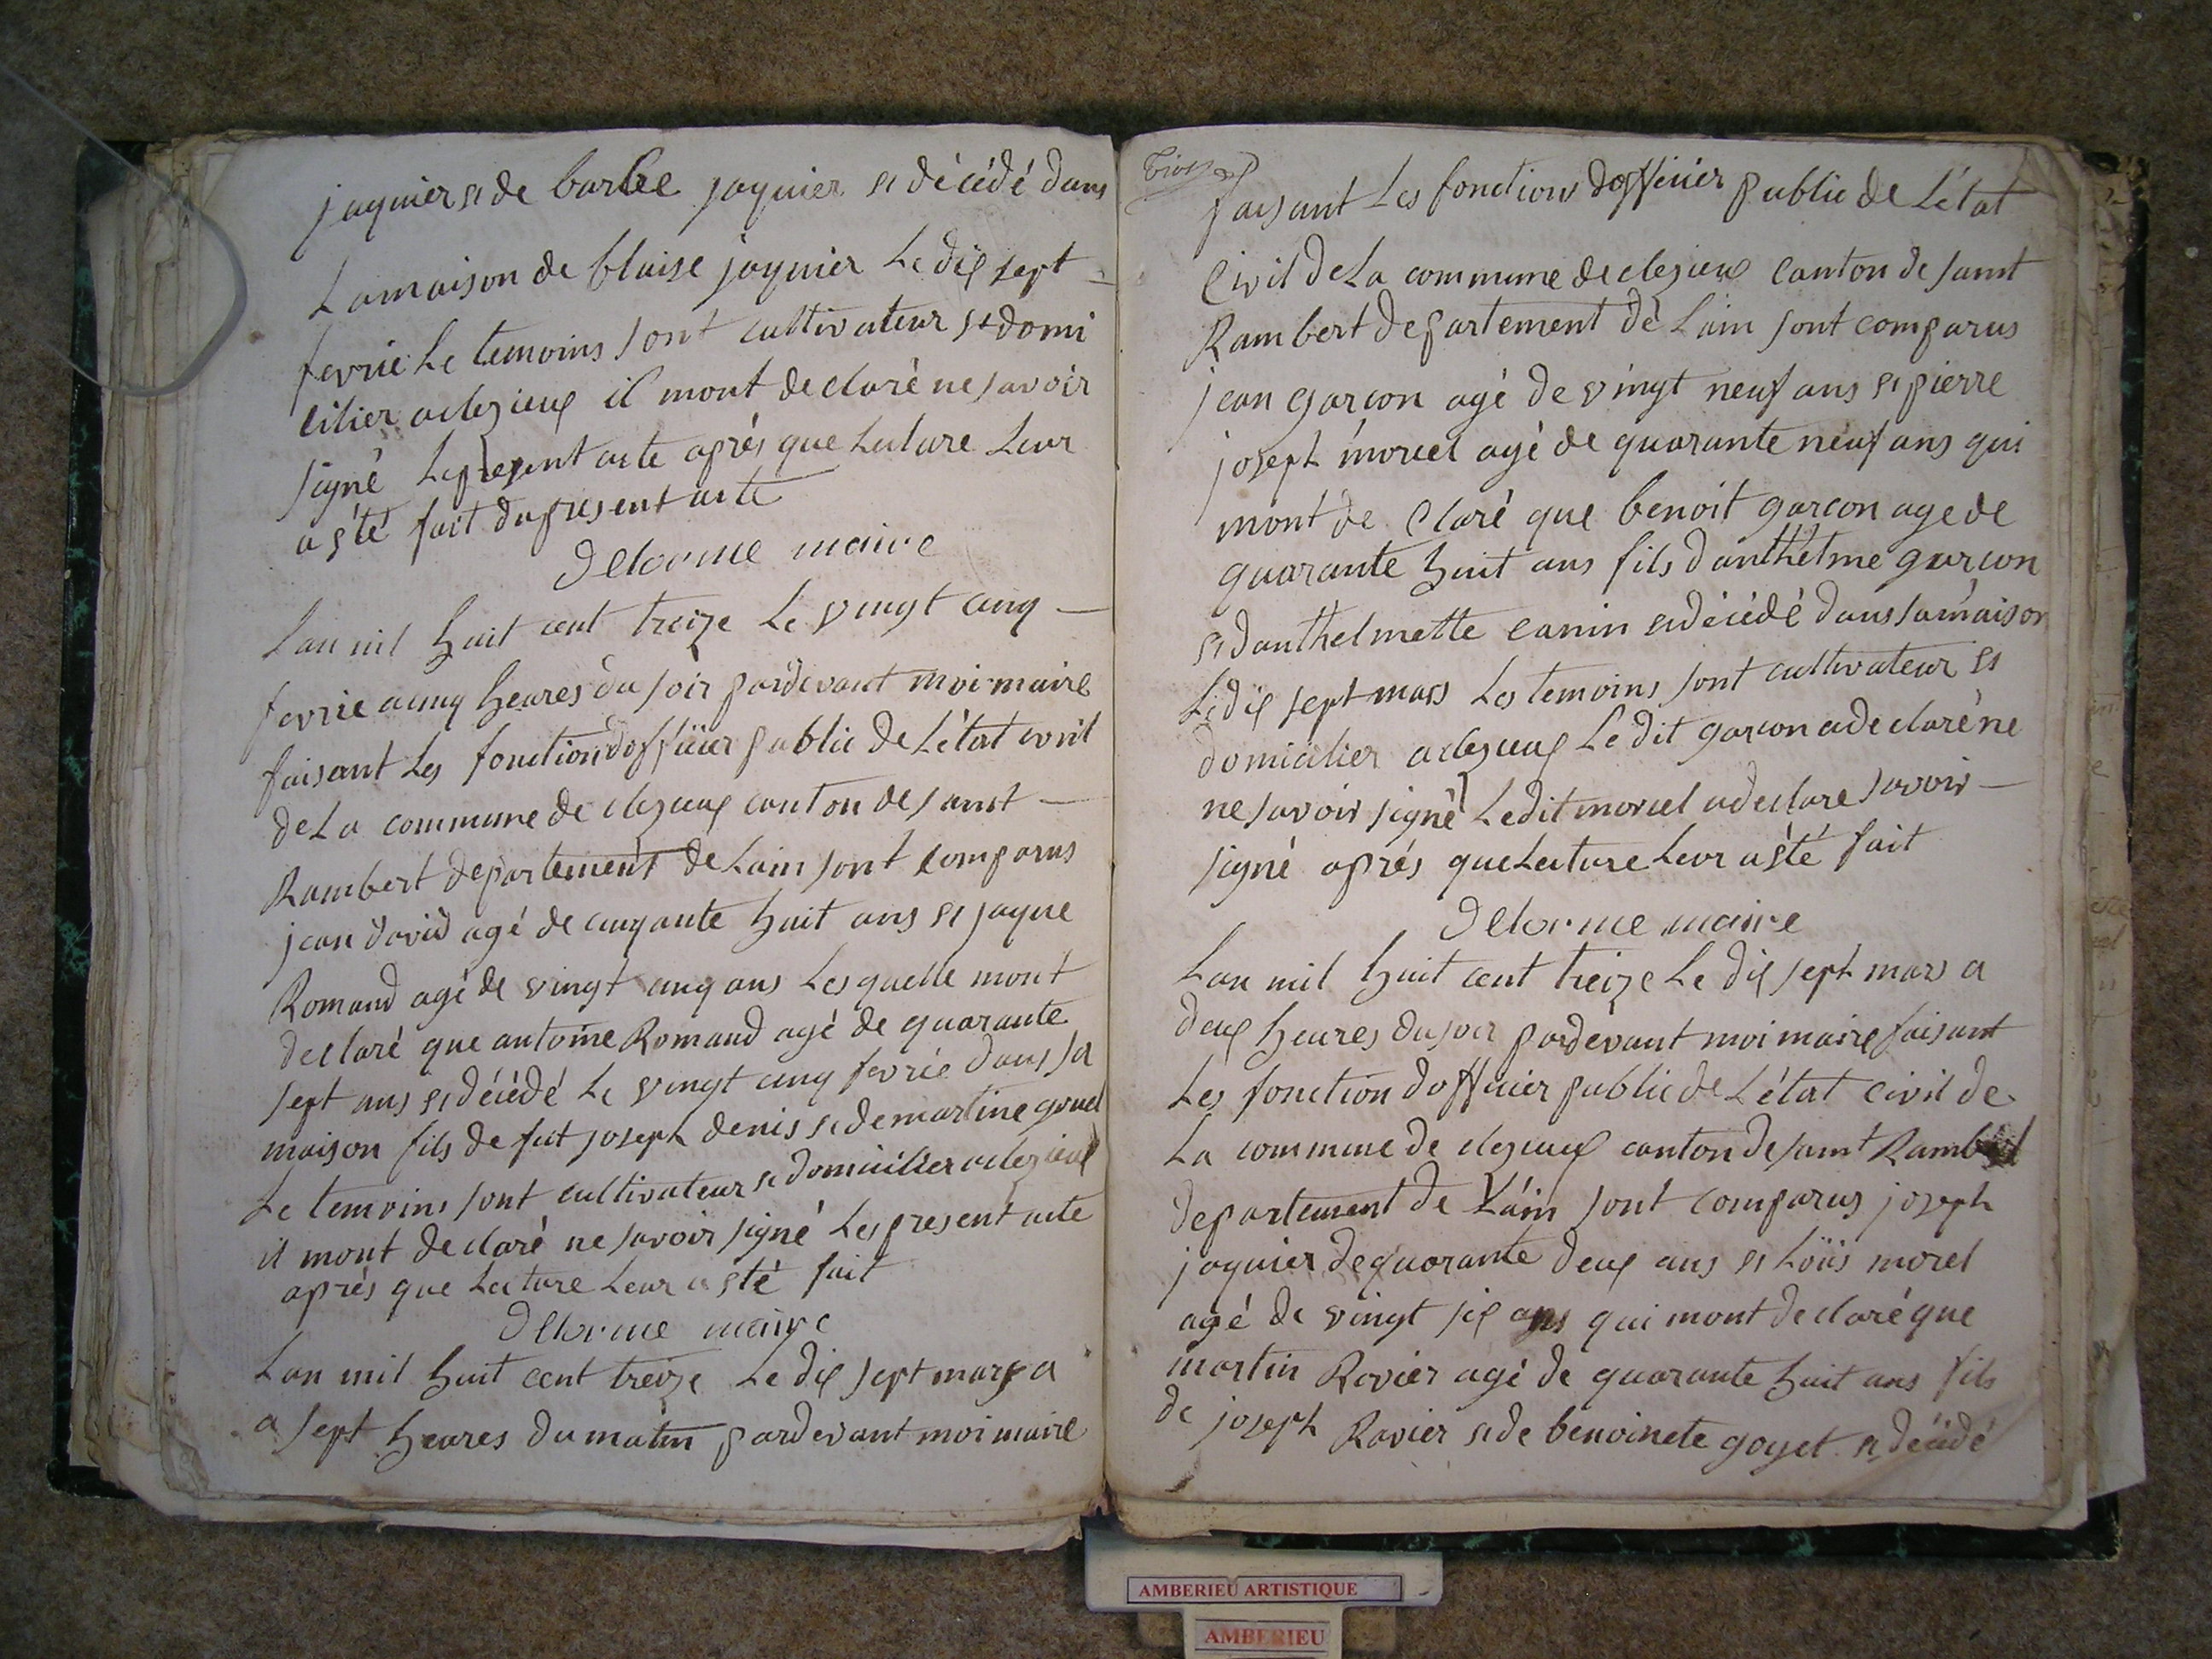 jaquier et de barbe jaquier et décédé dans
Lamaison de blaise jaquier Le dix sept
fevrie Le temoins sont cultivateur et domi
cilier aclezieux il mont declaré ne savoir
signé Lepresent acte aprés que Lecture Leur
a eté fait dupresent acte
Delorme maire
Lan mil huit cent treize Le vingt cinq
fevrie acinq heures du soir pardevant moi maire
faisant Les fonction dofficier public de Létat civil
deLa commune de clezieux canton de saint
Rambert departement de Lain sont comparus
jean david agé de cinqante huit ans et jaque
Romand agé de vingt cinq ans Lesquelle mont
declaré que antoine Romand agé de quarante
sept ans et décédé Le vingt cinq fevrie dans sa
maison fils de fut joseph denis et de martine gruel
Le temoins sont cultivateur et domicilier aclezieux
il mont declaré ne savoir signé Les present acte
aprés que Lecture Leur a eté fait
Delorme maire
Lan mil huit cent treize Le dix sept mars a
a sept heures du matin pardevant moi maire
faisant Les fonctions dofficier public de Létat
Civil deLa commune declezieux Canton de saint
Rambert departement de Lain sont comparus
jean garcon agé de vingt neuf ans et pierre
joseph morcel agé de quarante neuf ans qui
mont de Claré que benoit garcon age de
quarante huit ans fils danthelme garcon
et danthelmette canin et décédé dans samaison
Le dix sept mars Les temoins sont cultivateur et
domicilier aclezieux Le dit garcon a declaré ne
ne savoir signé Ledit morcel a declare savoir
signé aprés queLecture Leur a eté fait
Delorme maire
Lan mil huit cent treize Le dix sept mars a
deux heures dusoir pardevant moi maire faisant
Les fonction dofficier public de Létat civil de
La commune de clezieux canton de saint Rambert
departement de Láin sont comparus joseph
jaquier dequarante deux ans et Loüis morel
agé de vingt six ans qui mont declaré que
martin Ravier agé de quarante huit ans fils
de joseph Ravier et de benoinete goyet et décédé
AMBERIEU ARTISTIQUE
AMBERIEU